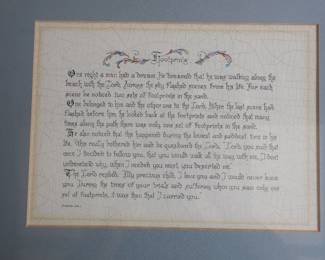 Footprints
One night a man had a dream. He dreamed that he was walking along the
beach with the Lord. Across the sky flashed scenes from his life. For each
scene he noticed two sets of footprints in the sand.
One belonged to him and the other one to the Lord. When the last scene had
flashed before him, he looked back at the footprints and noticed that many
times along the path there was only one set of footprints in the sand.
He also noticed that this happened during the lowest and saddest times in his
life. This really bothered him and he questioned the Lord. "Lord, you said that
once I decided to follow you, that you would walk all the way with me, I don't
understand why, when I needed you most, you deserted me."
The Lord replied, "My precious child, I love you and I would never leave
you. During the times of your trials and sufferings when you saw only one
set of footprints, it was then that I carried you."